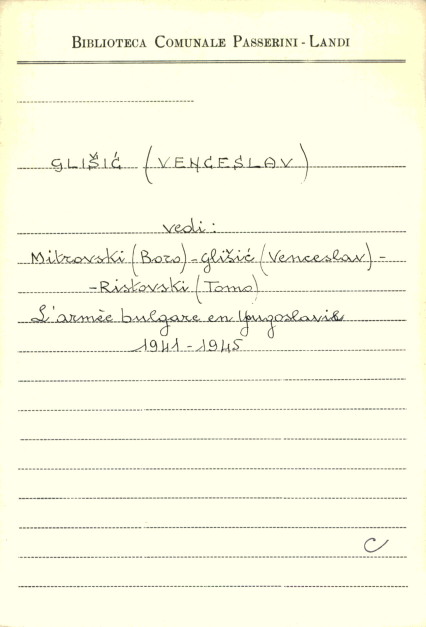 BIBLIOTECA COMUNALE PASSERINI - LANDI
GLIŠIĆ (VENCESLAV)
vedi:
Mitrovski (Boro) - Glišić (Venceslav) -
- Ristovski (Tomo)
L'armèe bulgare en Yougoslavie
1941 - 1945
C